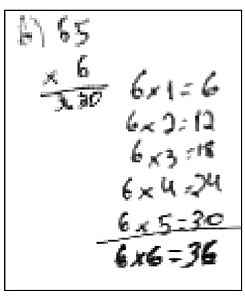 b) 65
x 6
330
6x1=6
6x2=12
6x3=18
6x4=24
6x5=30
6x6=36